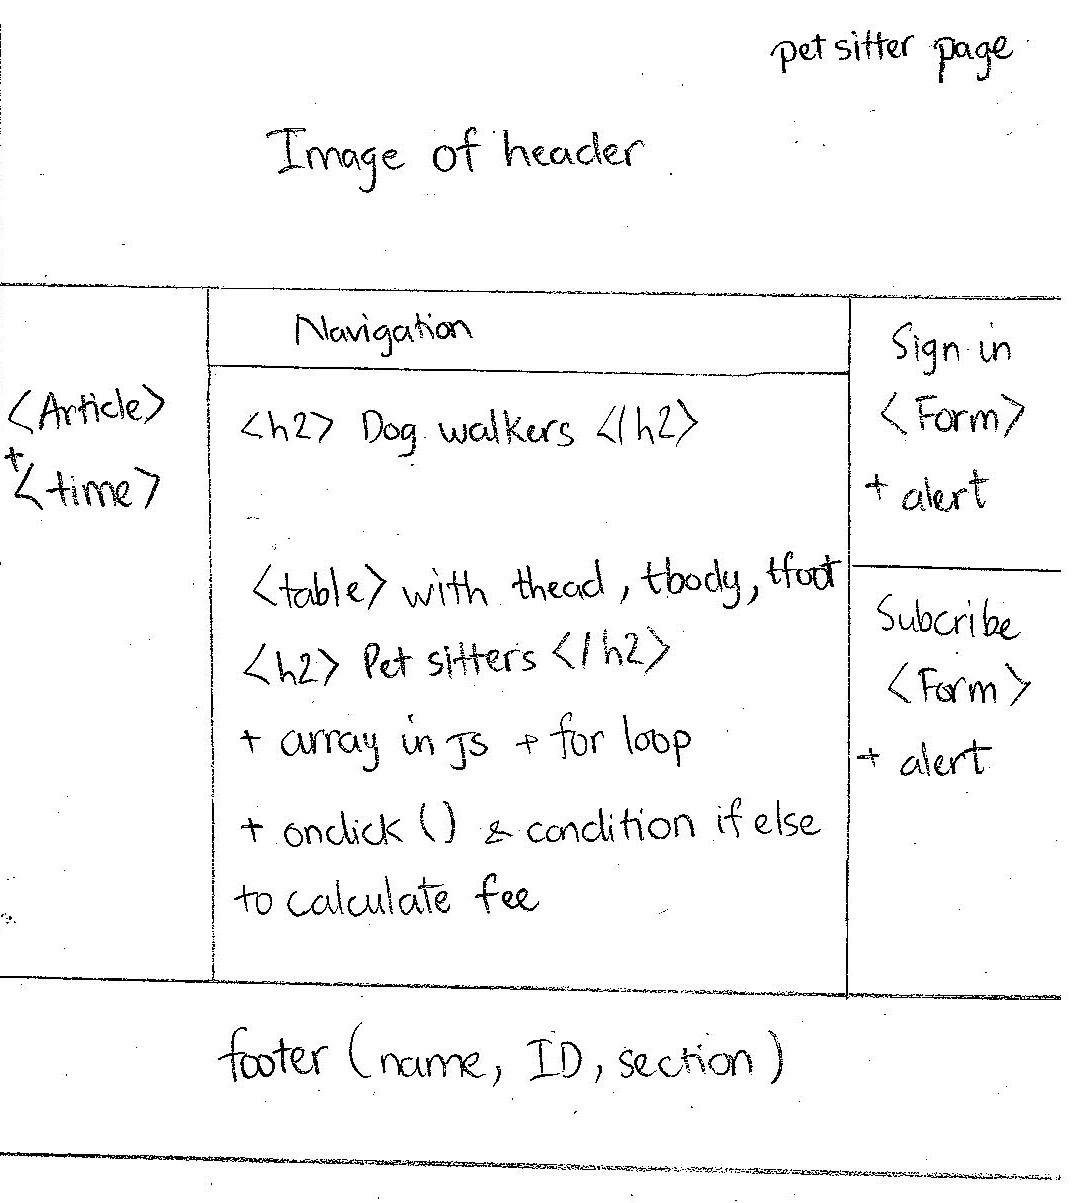 pet sitter page
Image of header
<Article>
+
<time>
Navigation
<h2> Dog walkers </h2>
<table> with thead, tbody, tfoot
<h2> Pet sitters </h2>
+ array in JS + for loop
+ onclick () & condition if else
to calculate fee
Sign in
<Form>
+ alert
Subcribe
<Form>
+ alert
footer (name, ID, section)